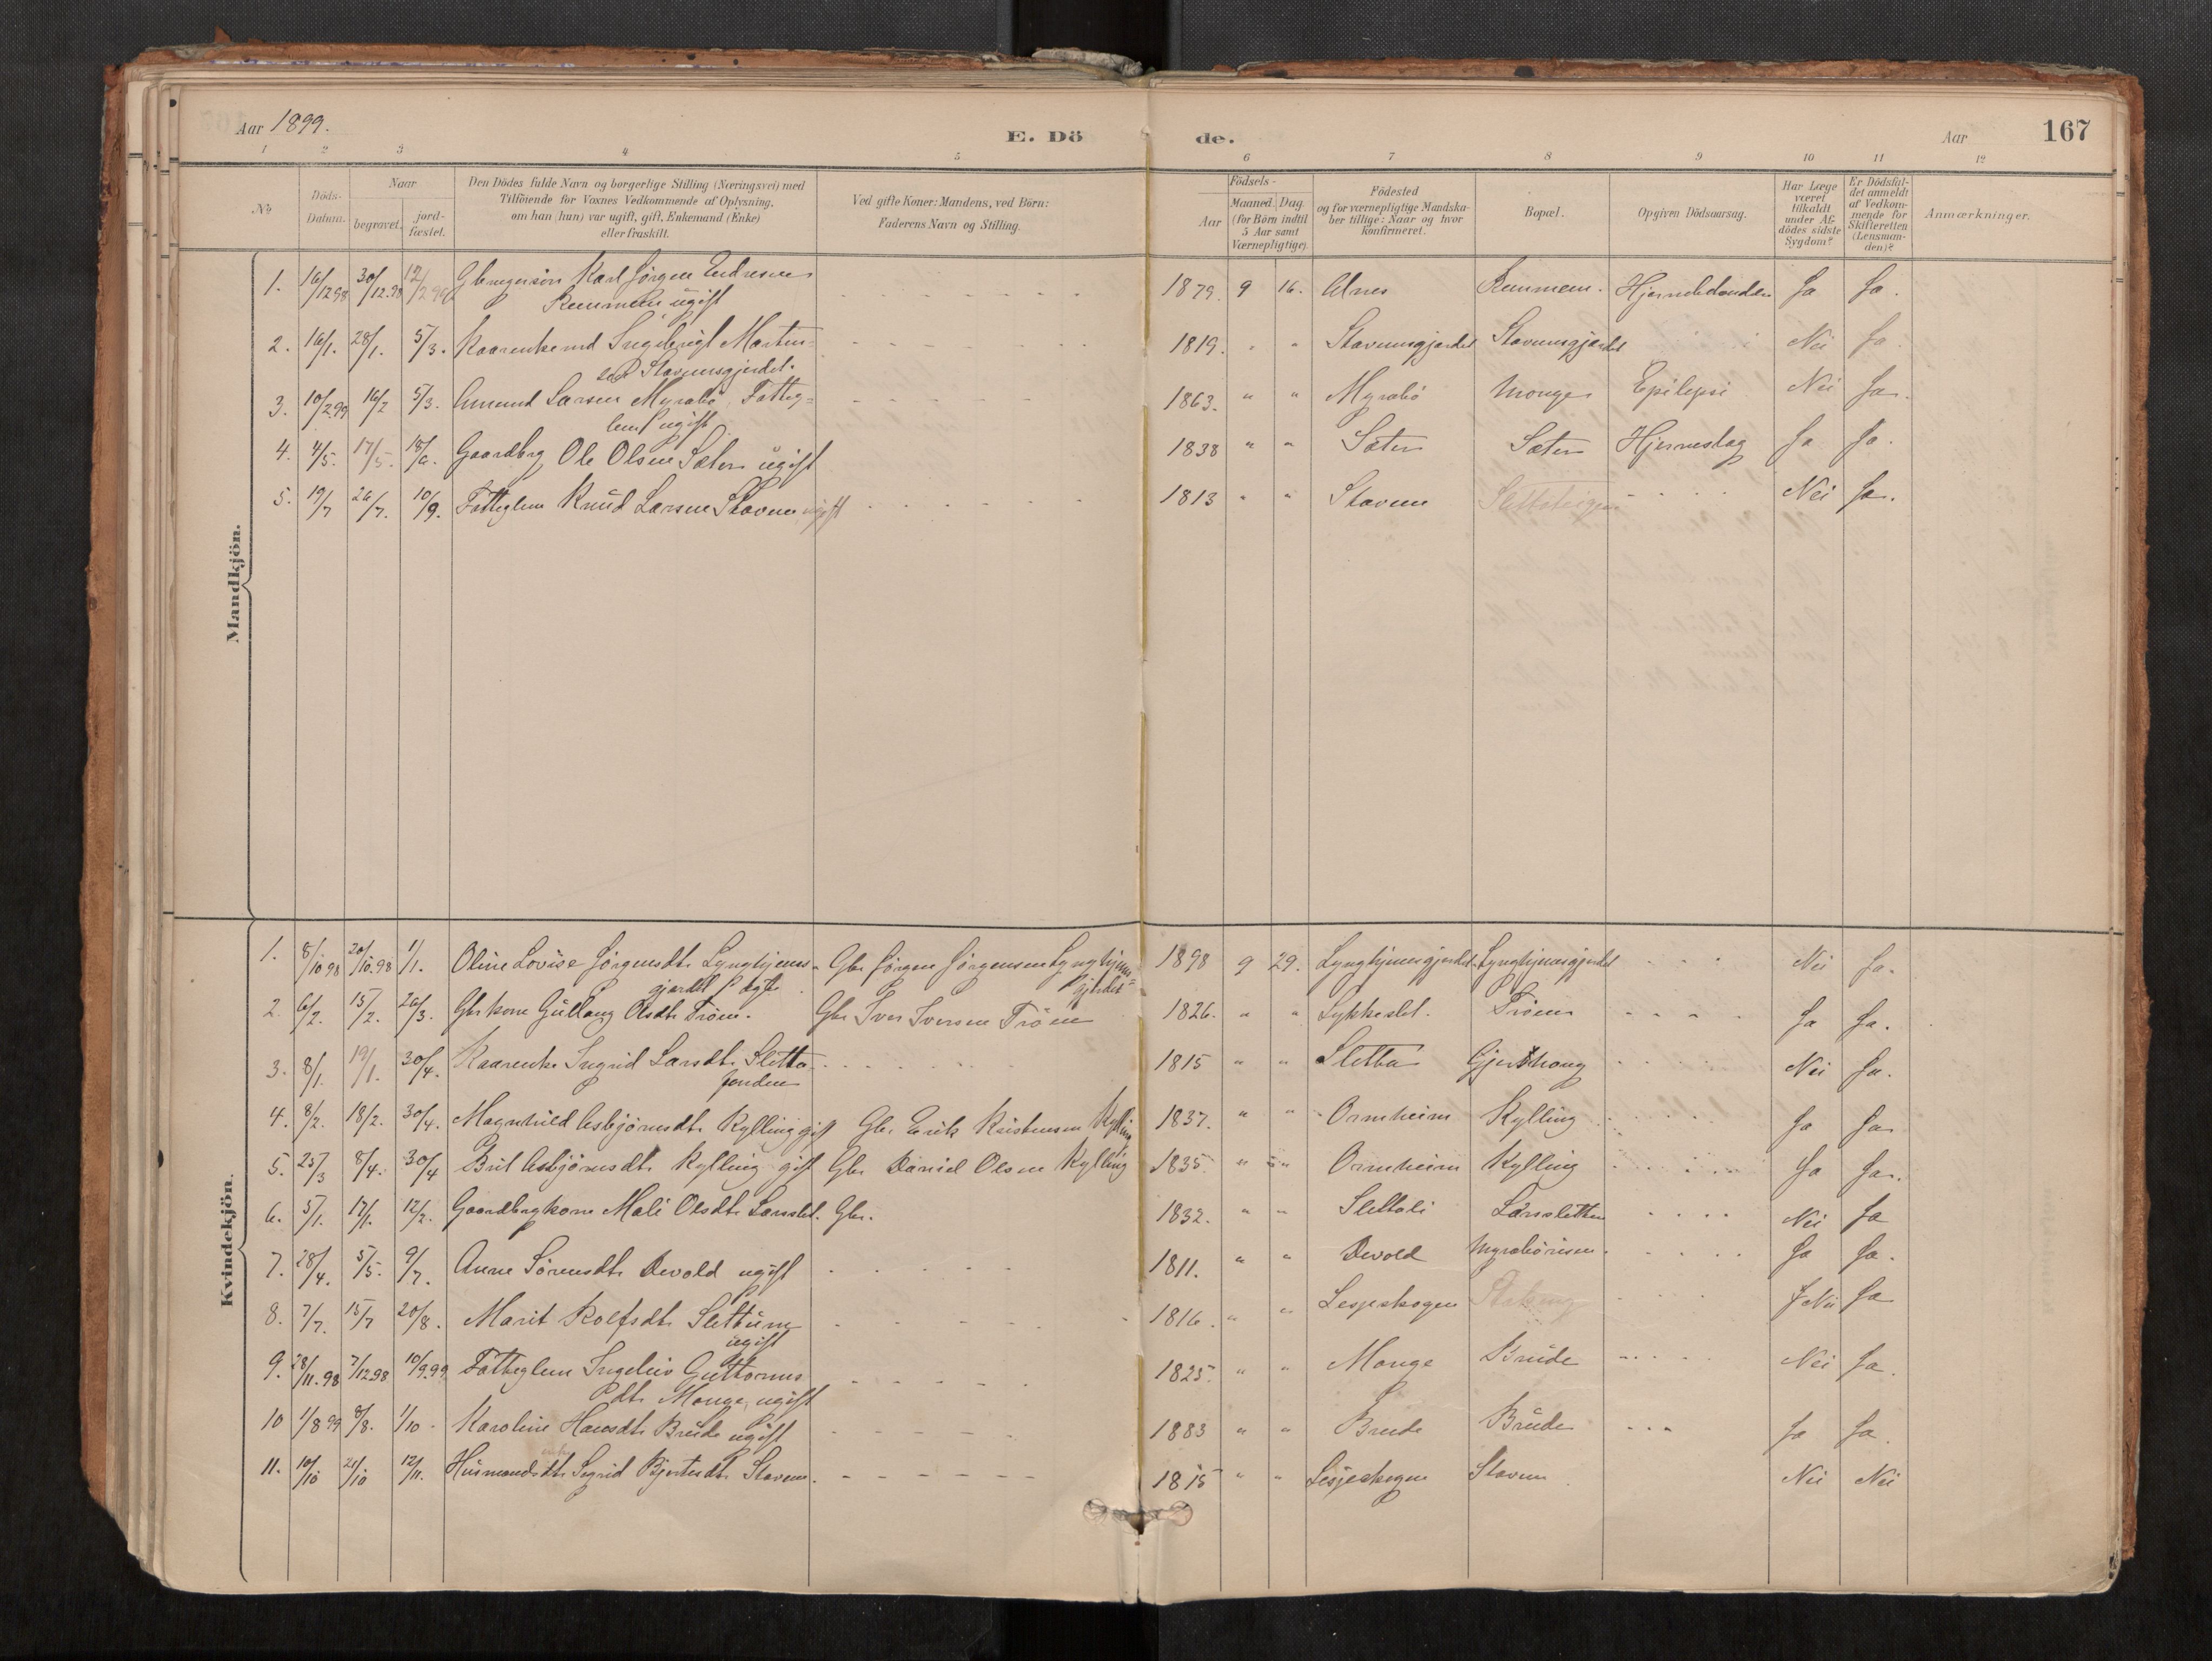 Aar 1899.
E. Dö de.
Aar
167
1 2 3 4 5 6 7 8 9 10 11 12
No
Döds-
Datum.
Naar
begravet.
jord-
fæstet.
Den Dödes fulde Navn og borgerlige Stilling (Næringsvei) med
Tilföiende for Voxnes Vedkommende af Oplysning,
om han (hun) var ugift, gift, Enkemand (Enke)
eller fraskilt.
Ved gifte Koner: Mandens, ved Börn:
Faderens Navn og Stilling.
Födsels-
Aar
Maaned. Dag.
(for Börn indtil
5 Aar samt
Værnepligtige).
Födested
og for værnepligtige Mandska-
ber tillige: Naar og hvor
konfirmeret.
Bopæl.
Opgiven Dödsaarsag.
Har Læge
været
tilkaldt
under Af-
dödes sidste
Sygdom?
Er Dödsfal-
det anmeldt
af Vedkom-
mende for
Skifteretten
(Lensman-
den)?
Anmærkninger.
Mandkjön.
1. 16/12 98 30/12.98 12/2 Karl Jörgen Endresen 1879. 9 16. Alnes Remmem. Ja Ja.
Remmem ugift
2. 16/1. 28/1. 5/3. Kaarenkemd Ingebrigt Martin- 1819. " " Stavemsgjerdet Stavemsgjerdet Nei Ja
sen Stavemsgjerdet.
3. 10/2.99 16/2 5/3. Amund Larsen Myrabö Fattig- 1863. " " Myrabö Monge Epilepsi Nei Ja.
lem ugift
4. 4/5. 17/5. 18/6. Gaardbrg Ole Olsen Sæter ugift 1838 " " Sæter Sæter Hjerneslag Ja Ja.
5. 19/7 26/7. 10/9. Fatteglem Knud Larsen Stavem ugift 1813 " " Stavem Nei Ja.
Kvindekjön.
1. 8/10 98 20/10.98 1/1. Oline Lovise Jörgensdtr Lynghjems- Gbr Jörgen Jörgensen Lynghjems- 1898 9 29. Lynghjemsgjerdet Lynghjemsgjerdet Nei Ja.
gjerdet ægte gjerdet
2. 6/2. 15/2. 26/3. Gbr kone Gullaug Olsdtr Tröen. Gbr Iver Iversen Tröen 1826. " " Lykkeslet. Tröen Ja Ja.
3. 8/1. 19/1. 30/4. Kaarenke Ingrid Larsdtr Sletta 1815 " " Sletta Nei Ja.
4. 8/2. 18/2. 30/4. Magnhild Asbjörnsdtr Kylling gift Gbr. Erik Kristensen Kylling 1837. " " Ormheim Kylling Ja Ja
5. 25/3 8/4. 30/4 Brit Asbjörnsdtr Kylling gift Gbr Daniel Olsen Kylling 1835. " " Ormheim Kylling Ja Ja.
6. 5/1. 17/1. 12/2. Gaardbrgkone Mali Olsdtr Larsslet. Gbr. 1832. " " Slettali Larssletten Nei Ja
7. 28/4. 5/5. 9/7. Anne Sörensdtr Devold ugift 1811. " " Devold Ja Ja.
8. 7/7. 15/7 20/8. Marit Rolfsdtr Slettum 1816. " " Lesjeskogen Nei Ja
ugift
9. 28/11.98 7/12.98 10/9.99 Fatteglem Ingeleiv Guttorms- 1825. " " Monge Brude Nei Ja.
dtr Monge, ugift
10 1/8 99 8/8. 1/10. Karoline Hansdtr Brude ugift 1883 " " Brude Brude Ja Ja.
11. 10/10 21/10 12/11. Husmandsdtr Sigrid Bjertesdtr Stavem. 1815 " " Lesjeskogen Stavem Nei Nei